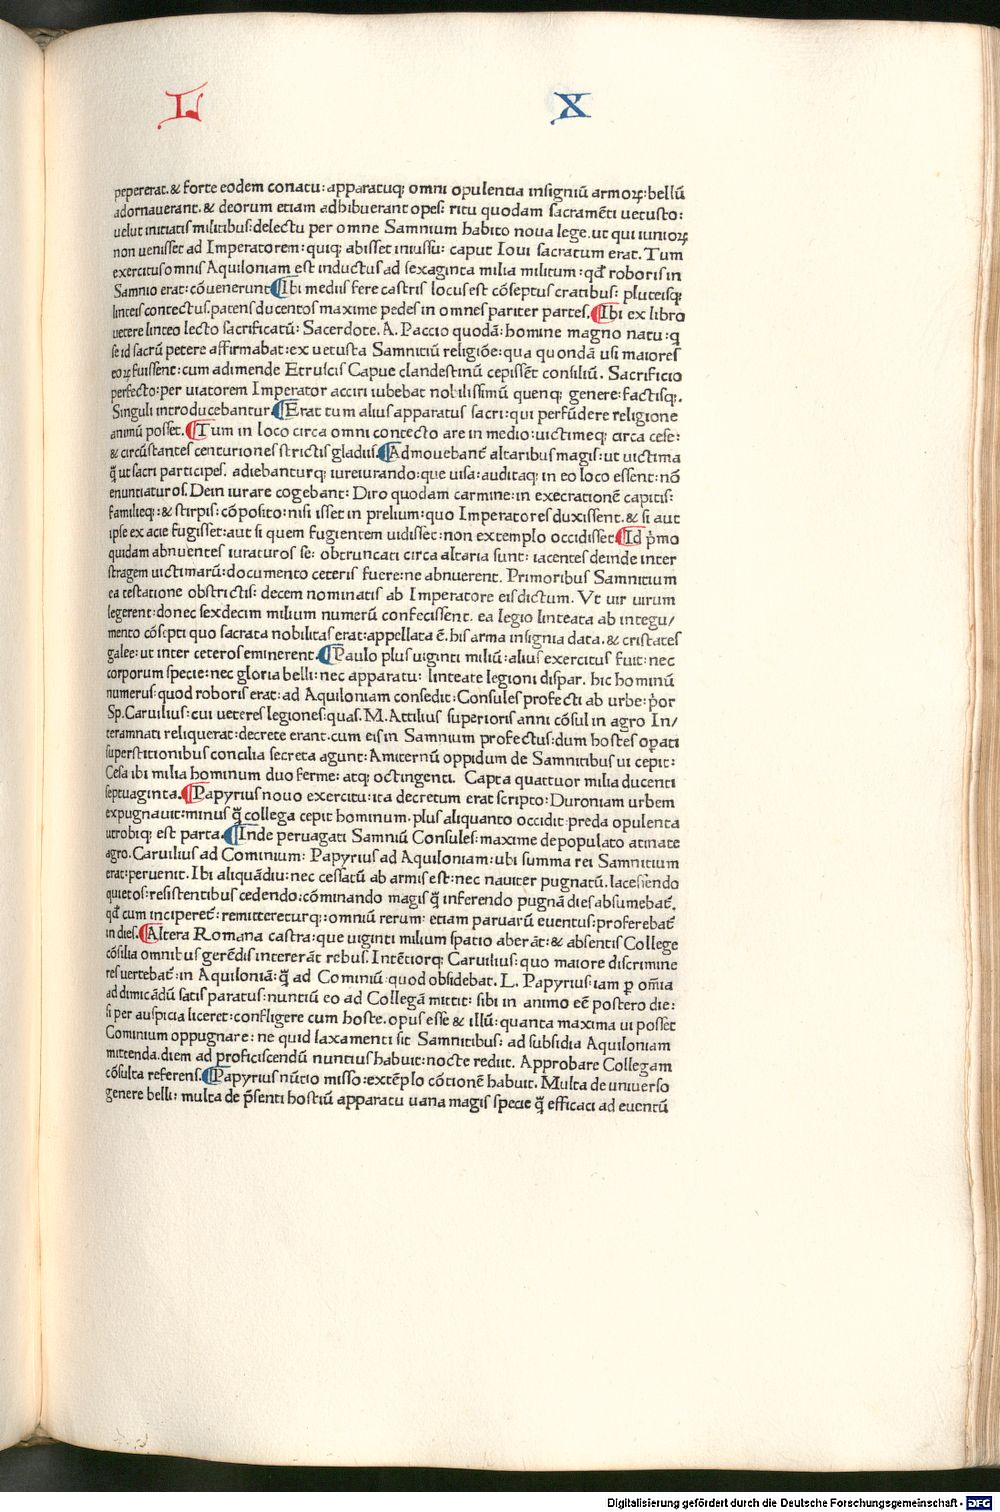 L X
pepererat. & forte eodem conatu: apparatuq; omni opulentia insigniū armoꝝ: bellū
adornauerant. & deorum etiam adhibuerant opes: ritu quodam sacramēti uetusto:
uelut initiatis militibus: delectu per omne Samnium habito noua lege. ut qui iunioꝝ
non uenisset ad Imperatorem: quiq; abisset iniussu: caput Ioui sacratum erat. Tum
exercitus omnis Aquiloniam est inductus ad sexaginta milia militum: qđ roboris in
Samnio erat: cōuenerunt ¶Ibi mediis fere castris locus est cōseptus cratibus: pluteisq;
linteis contectus. patens ducentos maxime pedes in omnes pariter partes. ¶Ibi ex libro
uetere linteo lecto sacrificatū: Sacerdote. A. Paccio quodā: homine magno natu: q
se id sacrū petere affirmabat: ex uetusta Samnitiū religiōe: qua quondā usi maiores
eoꝝ fuissent: cum adimende Etruscis Capue clandestinū cepissēt consiliū. Sacrificio
perfecto: per uiatorem Imperator acciri iubebat nobilissimū quenq; genere: factisq;.
Singuli introducebantur ¶Erat tum alius apparatus sacri: qui perfūdere religione
animū posset. ¶Tum in loco circa omni contecto are in medio: uictimeq; circa cese:
& circūstantes centuriones strictis gladiis. ¶Admouebant̄ altaribus magis: ut uictima
q̄ ut sacri particeps. adiebanturq; iureiurando: que uisa: auditaq; in eo loco essent: nō
enuntiaturos. Dein iurare cogebant: Diro quodam carmine: in execrationē capitis:
familieq;: & stirpis: cōposito: nisi isset in prelium: quo Imperatores duxissent. & si aut
ipse ex acie fugisset: aut si quem fugientem uidisset: non extemplo occidisset ¶Id p̄mo
quidam abnuentes iuraturos se: obtruncati circa altaria sunt: iacentes deinde inter
stragem uictimarū: documento ceteris fuere: ne abnuerent. Primoribus Samnitium
ea testatione obstrictis: decem nominatis ab Imperatore eis dictum. Vt uir uirum
legerent: donec sexdecim milium numerū confecissent. ea legio linteata ab integu/
mento cōsepti quo sacrata nobilitas erat: appellata ē. his arma insignia data. & cristates
galee: ut inter ceteros eminerent. ¶Paulo plus uiginti miliū: alius exercitus fuit: nec
corporum specie: nec gloria belli: nec apparatu: linteate legioni dispar. hic hominū
numerus: quod roboris erat: ad Aquiloniam consedit: Consules profecti ab urbe: p̄or
Sp. Caruilius: cui ueteres legiones: quas. M. Attilius superioris anni cōsul in agro In/
teramnati reliquerat: decrete erant. cum eis in Samnium profectus: dum hostes oꝑati
superstitionibus concilia secreta agunt: Amiternū oppidum de Samnitibus ui cepit:
Cesa ibi milia hominum duo ferme: atq; octingenti. Capta quattuor milia ducenti
septuaginta. ¶Papyrius nouo exercitu: ita decretum erat scripto: Duroniam urbem
expugnauit: minus q̄ collega cepit hominum. plus aliquanto occidit: preda opulenta
utrobiq; est parta. ¶Inde peruagati Samniū Consules: maxime depopulato atinate
agro. Caruilius ad Cominium: Papyrius ad Aquiloniam: ubi summa rei Samnitium
erat: peruenit. Ibi aliquādiu: nec cessatū ab armis est: nec nauiter pugnatū. lacessendo
quietos: resistentibus cedendo: cōminando magis q̄ inferendo pugnā dies absumebat̄.
qđ cum inciperet̄: remittereturq;: omniū rerum: etiam paruarū euentus: proferebat̄
in dies. ¶Altera Romana castra: que uiginti milium spatio aberāt: & absentis College
cōsilia omnibus gerēdis intererāt rebus. Intētiorq; Caruilius: quo maiore discrimine
res uertebat̄: in Aquiloniā: q̄ ad Cominiū: quod obsidebat. L. Papyrius: iam ꝑ om̄ia
ad dimicādū satis paratus: nuntiū eo ad Collegā mittit: sibi in animo eē postero die:
si per auspicia liceret: confligere cum hoste. opus esse & illū: quanta maxima ui posset
Cominium oppugnare: ne quid laxamenti sit Samnitibus: ad subsidia Aquiloniam
mittenda. diem ad proficiscendū nuntius habuit: nocte rediit. Approbare Collegam
cōsulta referens. ¶Papyrius nūtio misso: extēplo cōtionē habuit. Multa de uniuerso
genere belli: multa de p̄senti hostiū apparatu uana magis specie q̄ efficaci ad euentū
Digitalisierung gefördert durch die Deutsche Forschungsgemeinschaft - DFG